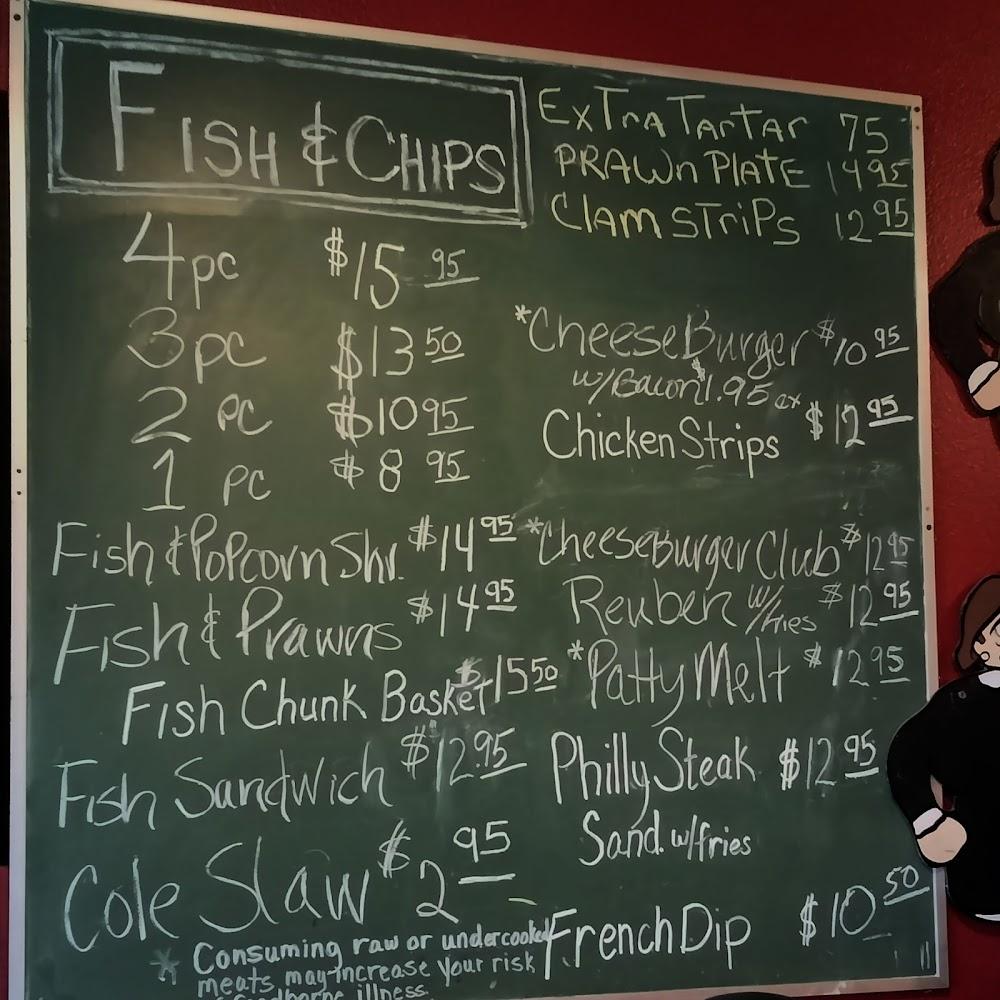 FISH & CHIPS
4pc $15 95
3pc $13 50
2 pc $10 95
1 pc $8 95
Fish & Popcorn Shr. $14 95
Fish & Prawns $14 95
Fish Chunk Basket $15 50
Fish Sandwich $12.95
Cole Slaw $2 95
* Consuming raw or undercooked
meats, may increase your risk
of foodborne illness.
ExTra TarTar 75
PRAWn PLATE 14 95
Clam sTriPs 12 95
*CheeseBurger $10 95
w/Bacon $1.95 ex
Chicken Strips $12 95
*CheeseBurger Club $12 95
Reuben w/fries $12 95
*Patty Melt $12 95
Philly Steak $12 95
Sand. w/fries
French Dip $10 50